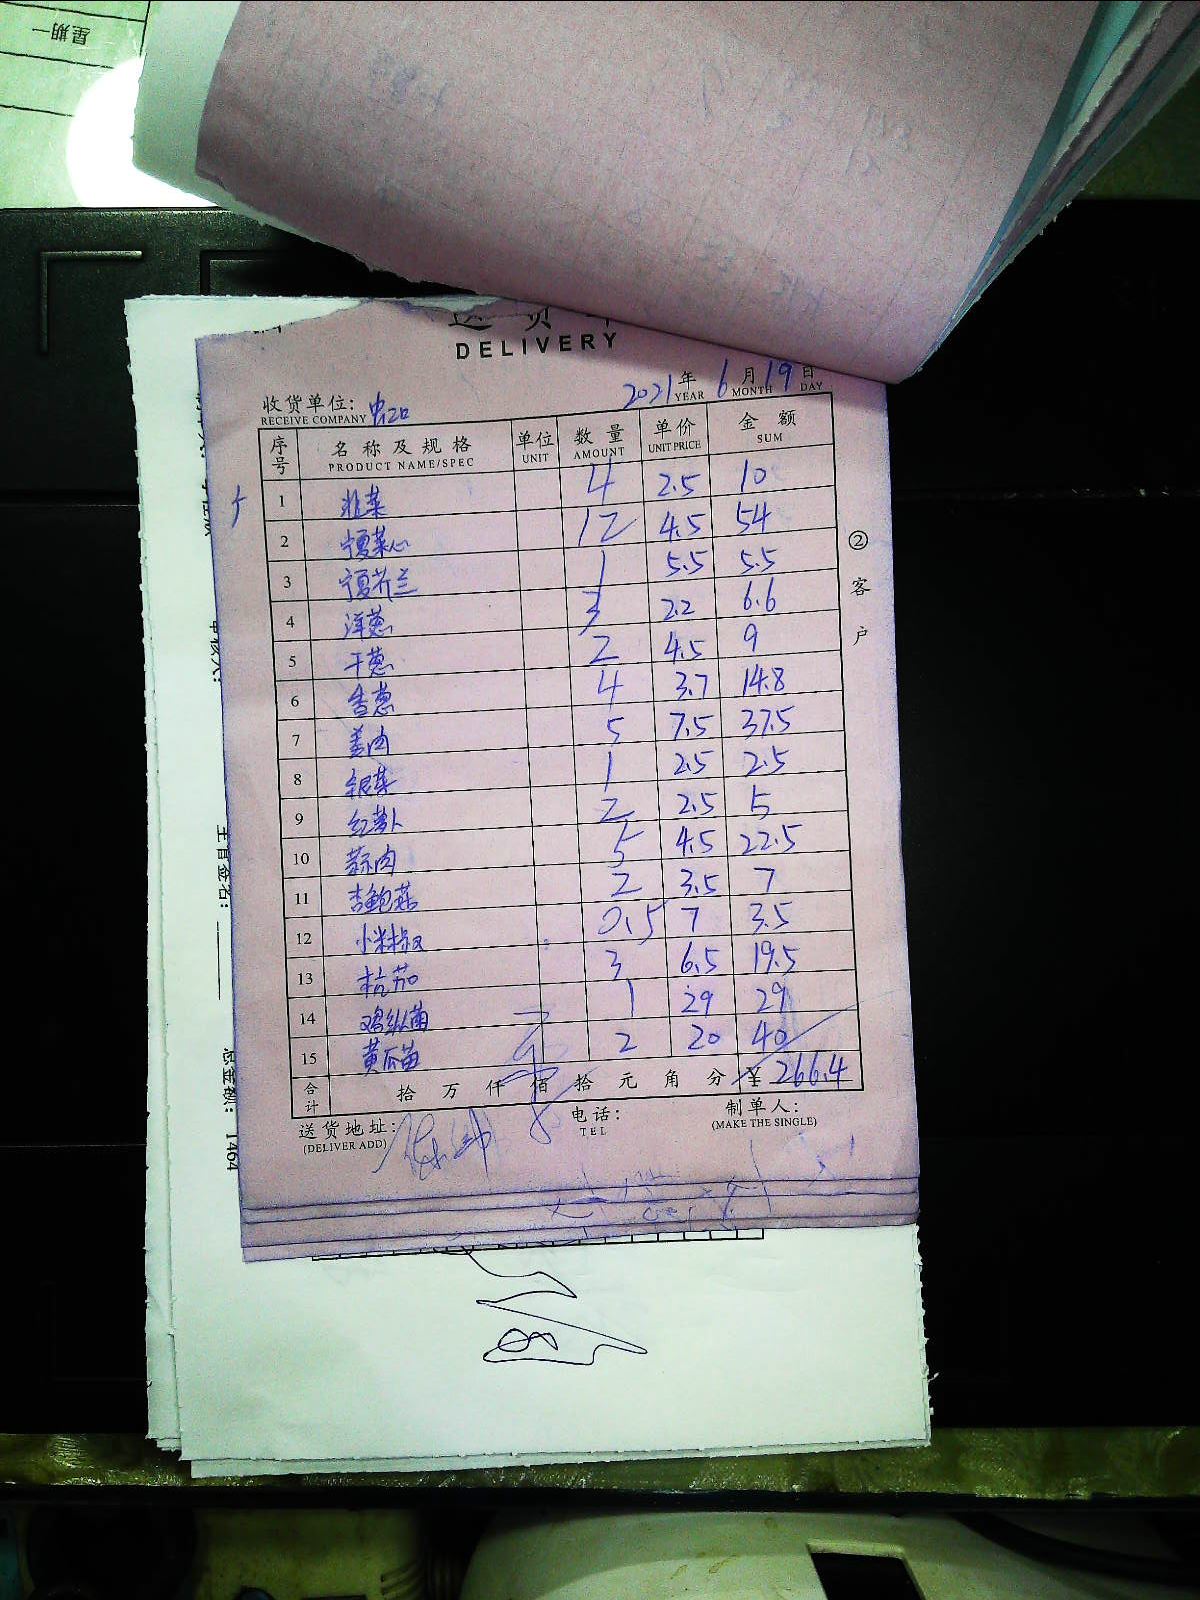 星期一
送货单
DELIVERY
2021年 6月 19日
YEAR MONTH DAY
收货单位：
RECEIVE COMPANY
序号 名称及规格 单位 数量 单价 金额
PRODUCT NAME/SPEC UNIT AMOUNT UNIT PRICE SUM
1 韭菜 4 2.5 10
2 宁夏菜心 12 4.5 54
3 宁夏芥兰 1 5.5 5.5
4 洋葱 3 2.2 6.6
5 干葱 2 4.5 9
6 香葱 4 3.7 14.8
7 姜肉 5 7.5 37.5
8 银菜 1 2.5 2.5
9 红萝卜 2 2.5 5
10 蒜肉 5 4.5 22.5
11 杏鲍菇 2 3.5 7
12 小米椒 0.5 7 3.5
13 杭茄 3 6.5 19.5
14 鸡纵菌 1 29 29
15 黄瓜苗 2 20 40
合计 拾 万 仟 佰 拾 元 角 分 ¥ 266.4
送货地址： 电话： 制单人：
(DELIVER ADD) TEL (MAKE THE SINGLE)
②客户
审核人：
主管签名：
总金额： 1464